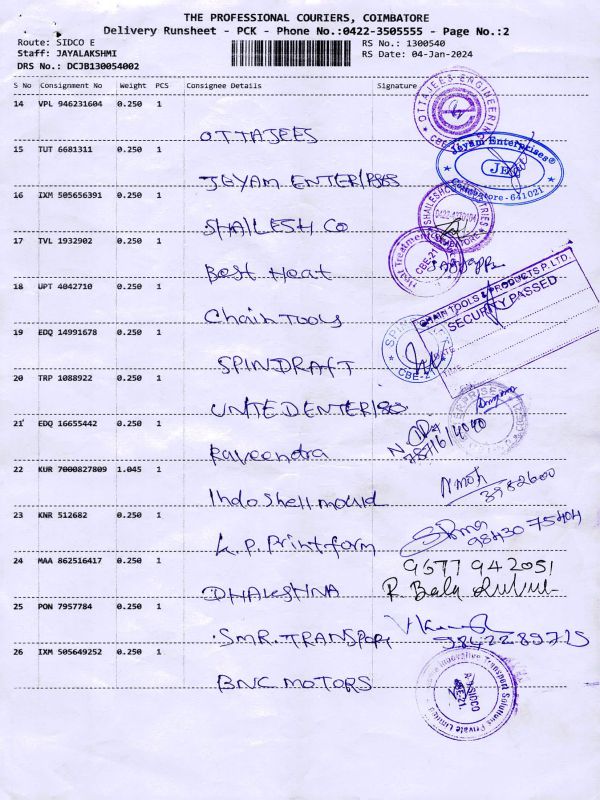 THE PROFESSIONAL COURIERS, COIMBATORE
Delivery Runsheet - PCK - Phone No.:0422-3505555 - Page No.:2
Route: SIDCO E RS No.: 1300540
Staff: JAYALAKSHMI RS Date: 04-Jan-2024
DRS No.: DCJB130054002
S No Consignment No Weight PCS Consignee Details Signature
14 VPL 946231604 0.250 1
OTTAJEES
OTTAJEES ENGINEERING
15 TUT 6681311 0.250 1
JEYAM ENTERPRISES
Jeyam Enterprises®
JE
Coimbatore-641021
16 IXM 505656391 0.250 1
SHAILESH CO
17 TVL 1932902 0.250 1
Best Heat
Heat Treatment
CBE-21
18 UPT 4042710 0.250 1
Chain Tools
CHAIN TOOLS & PRODUCTS P. LTD.
SECURITY PASSED
DATE
TIME
19 EDQ 14991678 0.250 1
SPINDRAFT
CBE-21
20 TRP 1088922 0.250 1
UNITED ENTERISO
21 EDQ 16655442 0.250 1
Raveendra
22 KUR 7000827809 1.045 1
Indo Shell mould
3982600
23 KNR 512682 0.250 1
K.P. Print form
98430 75404
24 MAA 862516417 0.250 1
9677 942051
DHALESHNA
R. Bala
25 PON 7957784 0.250 1
SMR. TRANSPORT
9842289715
26 IXM 505649252 0.250 1
BNC MOTORS
Innovative Transport Solutions Private Limited
SIDCO